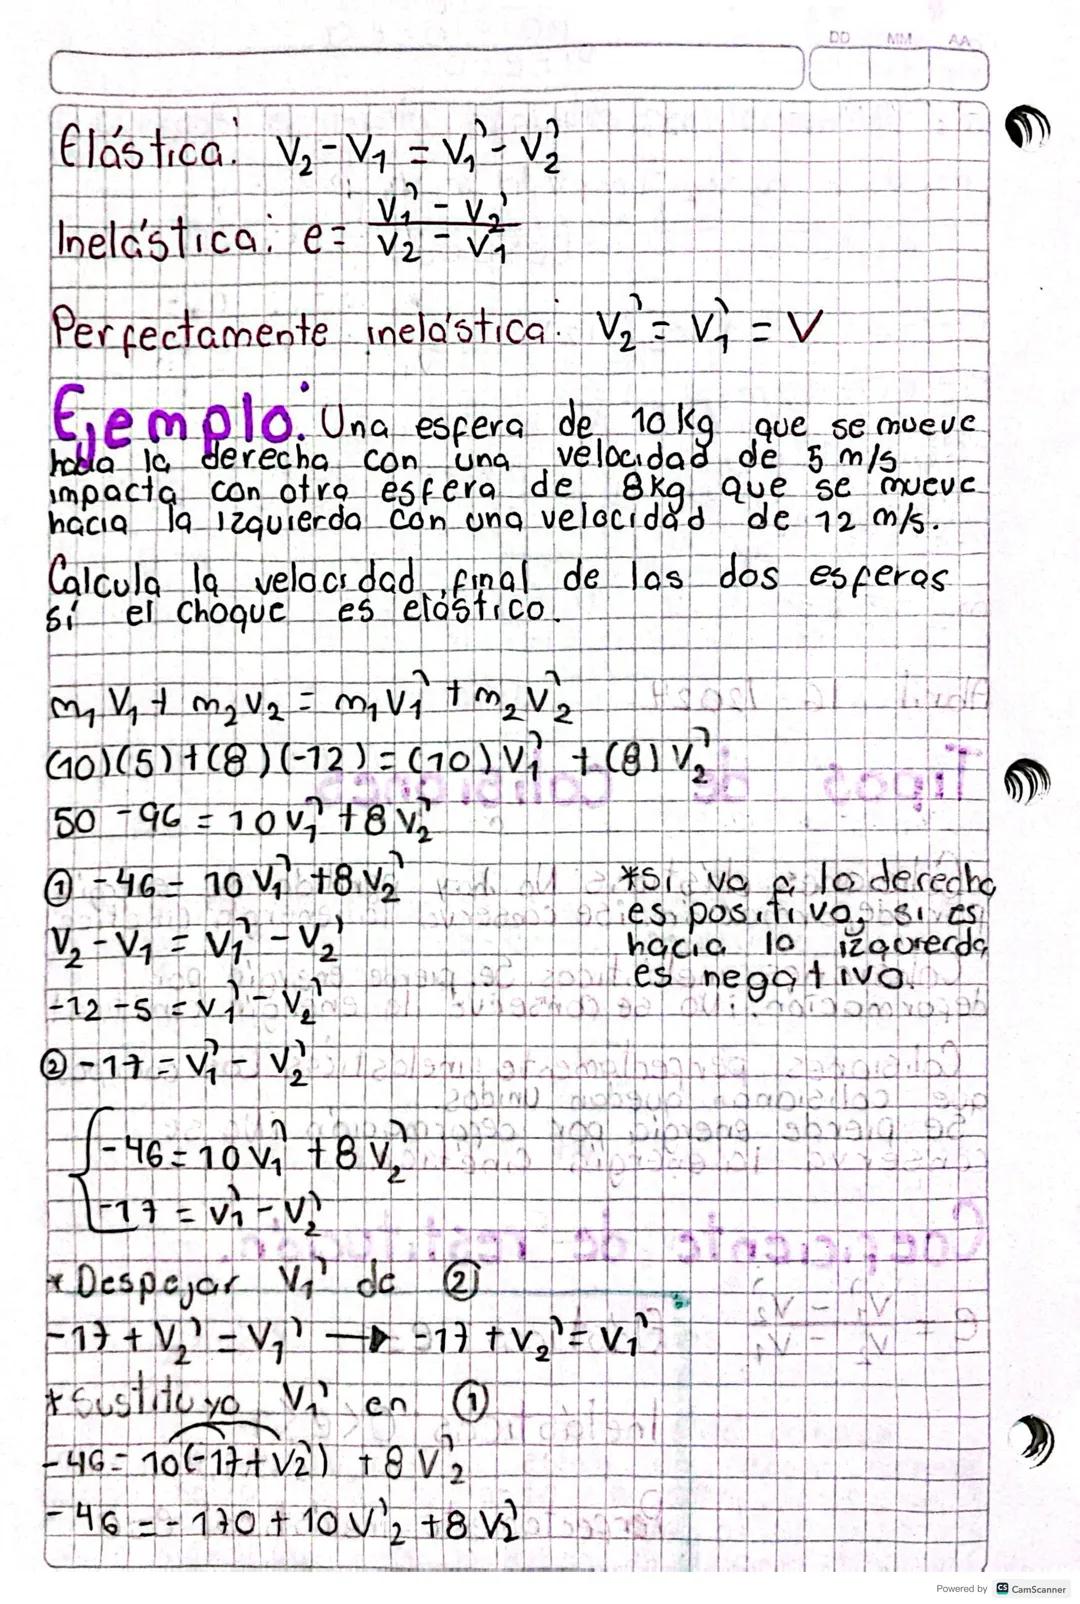 DD MM AA
Elástica: V₂ - V₁ = V₁' - V₂'
Inelástica: e = (V₁' - V₂') / (V₂ - V₁)
Perfectamente inelástica: V₂' = V₁' = V
Ejemplo: Una esfera de 10 Kg que se mueve
hacia la derecha con una velocidad de 5 m/s
impacta con otra esfera de 8Kg que se mueve
hacia la izquierda con una velocidad de 12 m/s.
Calcula la velocidad final de las dos esferas
si el choque es elástico.
m₁ V₁ + m₂ V₂ = m₁ V₁' + m₂ V₂'
(10)(5) + (8)(-12) = (10) V₁' + (8) V₂'
50 - 96 = 10 V₁' + 8 V₂'
① -46 = 10 V₁' + 8 V₂'
*Si va a la derecha
es positivo, si es
hacia la izquierda
es negativo.
V₂ - V₁ = V₁' - V₂'
-12 - 5 = V₁' - V₂'
② -17 = V₁' - V₂'
-46 = 10 V₁' + 8 V₂'
-17 = V₁' - V₂'
* Despejar V₁' de ②
-17 + V₂' = V₁' → -17 + V₂' = V₁'
* Sustituyo V₁' en ①
-46 = 10(-17 + V₂') + 8 V₂'
-46 = -170 + 10 V'₂ + 8 V₂'
Powered by CS CamScanner